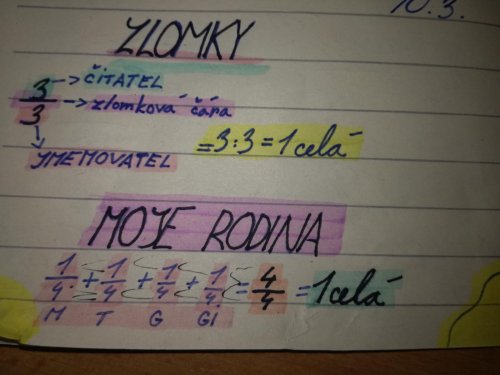 10.3.
ZLOMKY
3/3 -> ČITATEL
-> zlomková čára
JMENOVATEL
=3:3=1celá
MOJE RODINA
1/4+1/4+1/4+1/4=4/4=1celá
M T G Gi